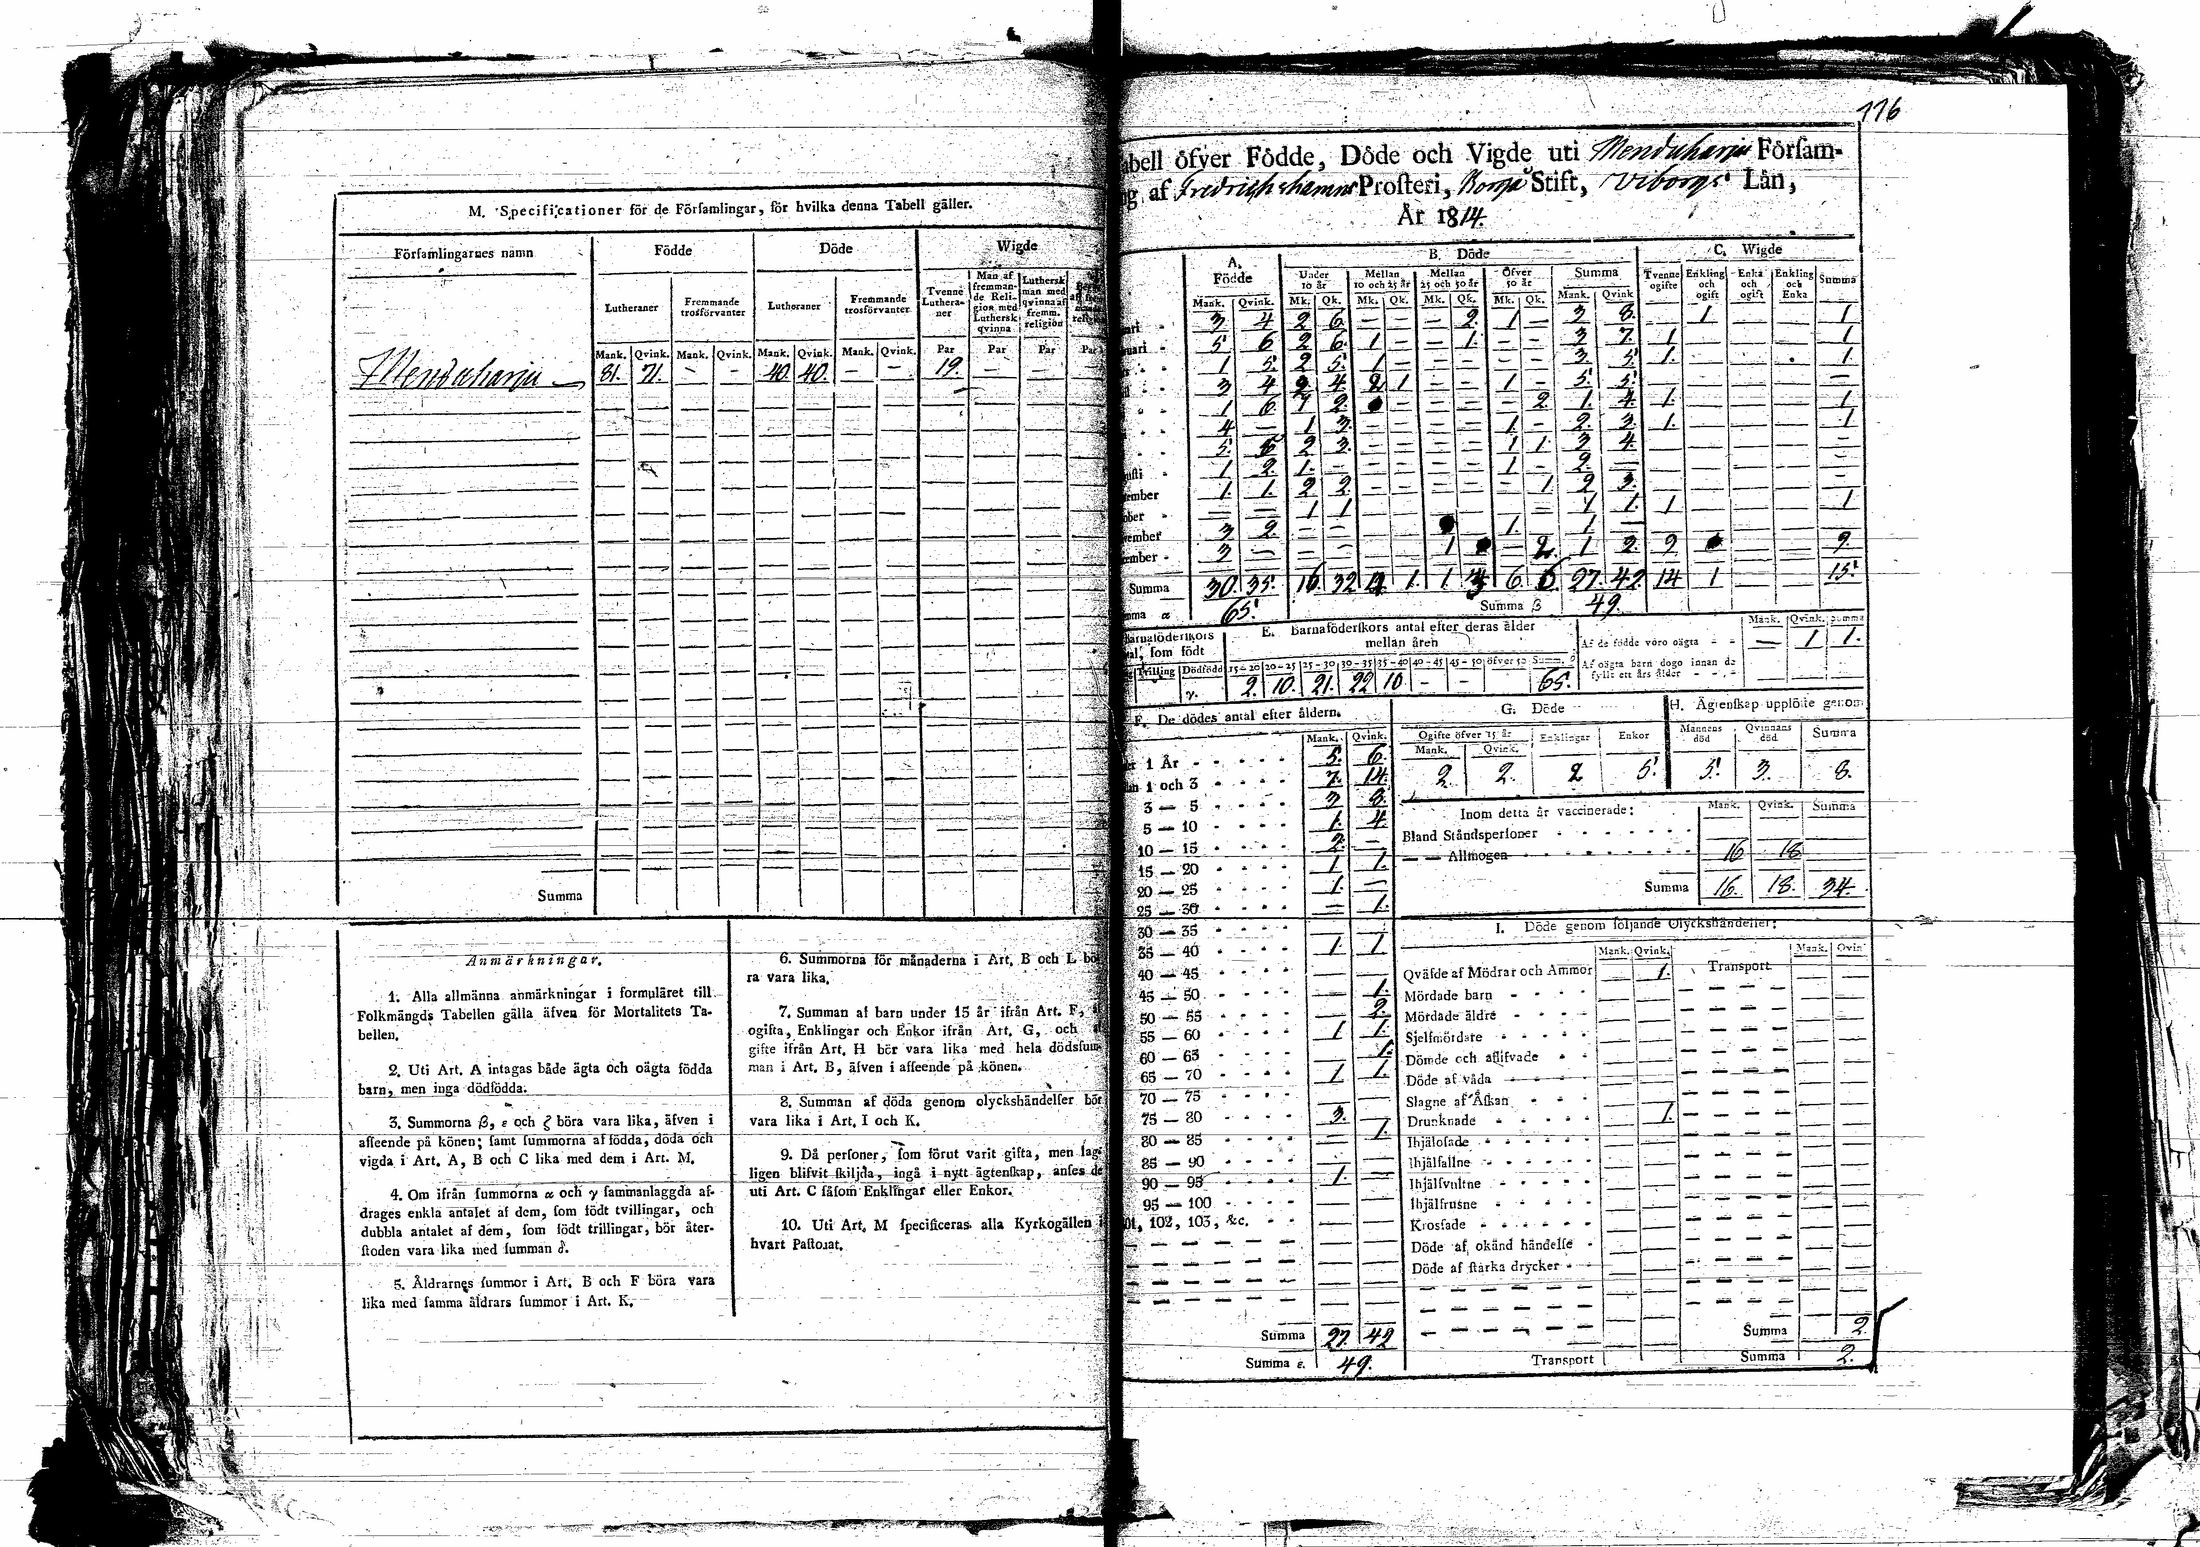 M. Specificationer för de Församlingar, för hvilka denna Tabell gäller.
Församlingarnes namn | Födde | Döde | Wigde
Lutheraner | Fremmande trosförvanter | Lutheraner | Fremmande trosförvanter | Tvenne Lutheraner | Man af fremmande Religion med Luthersk qvinna | Luthersk man med qvinna af fremm. religion
Mank. | Qvink. | Mank. | Qvink. | Mank. | Qvink. | Mank. | Qvink. | Par | Par | Par | Par
Menduharju | 81. | 71. | - | - | 40. | 40. | - | - | 19. | -
Summa
Anmärkningar.
1. Alla allmänna anmärkningar i formuläret till
Folkmängds Tabellen gälla äfven för Mortalitets Ta-
bellen.
2. Uti Art. A intagas både ägta och oägta födda
barn, men inga dödfödda.
3. Summorna β, ε och ζ böra vara lika, äfven i
afseende på könen; samt summorna af födda, döda och
vigda i Art. A, B och C lika med dem i Art. M.
4. Om ifrån summorna α och γ sammanlaggda af-
drages enkla antalet af dem, som födt tvillingar, och
dubbla antalet af dem, som födt trillingar, bör åter-
stoden vara lika med summan δ.
5. Åldrarnes summor i Art. B och F böra vara
lika med samma åldrars summor i Art. K.
6. Summorna för månaderna i Art. B och L bö
ra vara lika.
7. Summan af barn under 15 år ifrån Art. F,
ogifta, Enklingar och Enkor ifrån Art. G, och
gifte ifrån Art. H bör vara lika med hela dödsfum-
man i Art. B, äfven i afseende på könen.
8. Summan af döda genom olyckshändelser bör
vara lika i Art. I och K.
9. Då personer, som förut varit gifta, men lag-
ligen blifvit skiljda, ingå i nytt ägtenskap, anses de
uti Art. C såsom Enklingar eller Enkor.
10. Uti Art. M specificeras alla Kyrkogällen i
hvart Pastorat.
116
abell öfver Födde, Döde och Vigde uti Menduharju Församl-
ng af Fredrichshamns Prosteri, Borgå Stift, Viborgs Län,
År 1814.
A. Födde | B. Döde | C. Wigde
Under 10 år | Mellan 10 och 25 år | Mellan 25 och 50 år | Öfver 50 år | Summa | Tvenne ogifte | Enkling och ogift | Enka och ogift | Enkling och Enka | Summa
Mank. | Qvink. | Mk. | Qk. | Mk. | Qk. | Mk. | Qk. | Mk. | Qk. | Mank. | Qvink
uari | 3 | 4 | 2 | 6 | - | - | - | 2. | 1 | - | 3 | 8. | | 1 | | | 1
ruari | 5 | 6 | 2 | 6. | 1 | - | - | 1. | - | - | 3 | 7. | 1 | | | | 1
1 | 5. | 2 | 5. | 1 | - | - | - | - | - | 3. | 5. | 1. | | | | 1.
3 | 4 | 2 | 4. | 2 | 1 | - | - | 1 | - | 5. | 5. | | | | | -
1 | 6. | 1 | 2. | | - | - | - | - | 2. | 1. | 4. | 1. | | | | 1
4 | - | 1 | 3. | - | - | - | - | 1. | - | 2. | 3. | 1. | | | | 1
5. | 6 | 2 | 3. | - | - | - | - | 1 | 1. | 3 | 4. | | | | | -
usti | 1 | 2. | 1. | - | - | - | - | - | 1 | - | 2. | -
ember | 1. | 1. | 2 | 2. | - | - | - | - | - | 1. | 2 | 3.
ober | - | - | 1 | 1 | | | | | | - | 1 | 1. | 1 | | | | 1
vember | 3 | 2. | - | - | | | | | 1. | | 1. | -
ember | 3 | - | - | - | | | 1 | | - | 2. | 1 | 2. | 9 | | | | 9.
Summa | 30. | 35. | 16 | 32 | 4 | 1. | 1 | 3 | 6. | 6. | 27. | 42. | 14 | 1 | | | 15.
mma α | 65. | Summa β | 49.
Barnaföderskors
al, som födt
Trilling | Dödfödd
γ.
E. Barnaföderskors antal efter deras ålder
mellan åren
15-20 | 20-25 | 25-30 | 30-35 | 35-40 | 40-45 | 45-50 | öfver 50 | Summ. δ
2. | 10. | 21. | 22 | 10 | - | - | | 65.
Mank. | Qvink. | Summa
Af de födde voro oägta | - | 1 | 1.
Af oägta barn dogo innan de
fyllt ett års ålder
F. De dödes antal efter åldern.
Mank. | Qvink.
er 1 År | 5. | 6.
an 1 och 3 | 7. | 14.
3 — 5 | 3 | 8.
5 — 10 | 1. | 4.
10 — 15 | 2. | -
15 — 20 | 1 | 1.
20 — 25 | 1. | -
25 — 30 | - | 1.
30 — 35
35 — 40 | 1 | 1.
40 — 45
45 — 50 | - | 1.
50 — 55 | - | 2.
55 — 60 | 1 | 1.
60 — 65 | | 1.
65 — 70 | 1 | 1.
70 — 75
75 — 80 | 3. | -
80 — 85 | - | 1.
85 — 90
90 — 95 | 1. | -
95 — 100
101, 102, 103, &c.
Summa | 27. | 42
Summa ε. | 49.
G. Döde
Ogifte öfver 15 år | Enklingar | Enkor
Mank. | Qvink.
2. | 2. | 2 | 5.
H. Ägtenskap upplöste genom
Mannens död | Qvinnans död | Summa
5. | 3. | 8.
Inom detta år vaccinerade: | Mank. | Qvink. | Summa
Bland Ståndspersoner
— — Allmogen | 16 | 18
Summa | 16. | 18. | 34.
I. Döde genom följande Olyckshändelser:
Mank. | Qvink. | Mank. | Qvin
Qväfde af Mödrar och Ammor | - | 1. | Transport
Mördade barn
Mördade äldre
Sjelfmördare
Dömde och aflifvade
Döde af våda
Slagne af Åskan
Drunknade | - | 1.
Ihjälosade
Ihjälfallne
Ihjälsvultne
Ihjälfrusne
Krossade
Döde af okänd händelse
Döde af starka drycker
Summa | 2
Transport | Summa | 2.